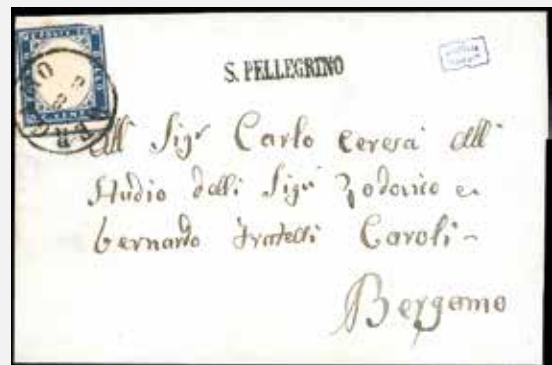 S. PELLEGRINO
All Sigr Carlo Ceresa all
Studio dalli Sigri Lodovico e
bernardo fratelli Caroli -
Bergamo